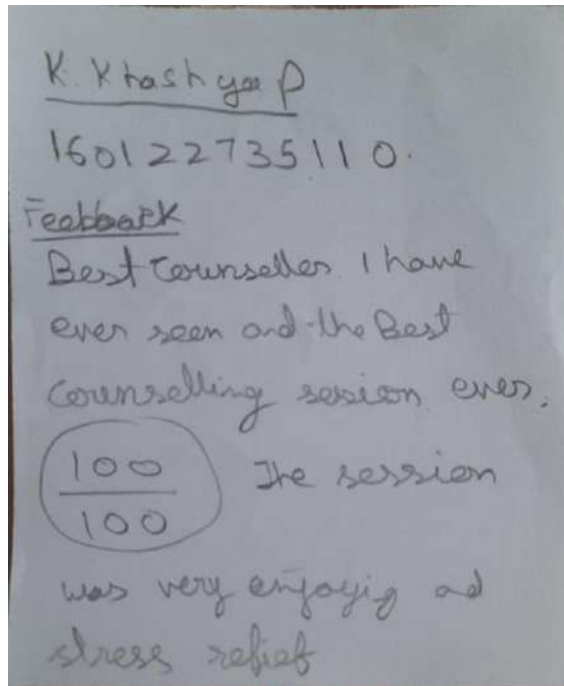 K. Khashyap
160122735110.
Feedback
Best Counseller I have
ever seen and the Best
Counselling session ever.
100
100
The session
was very enjoyig ad
stress relief